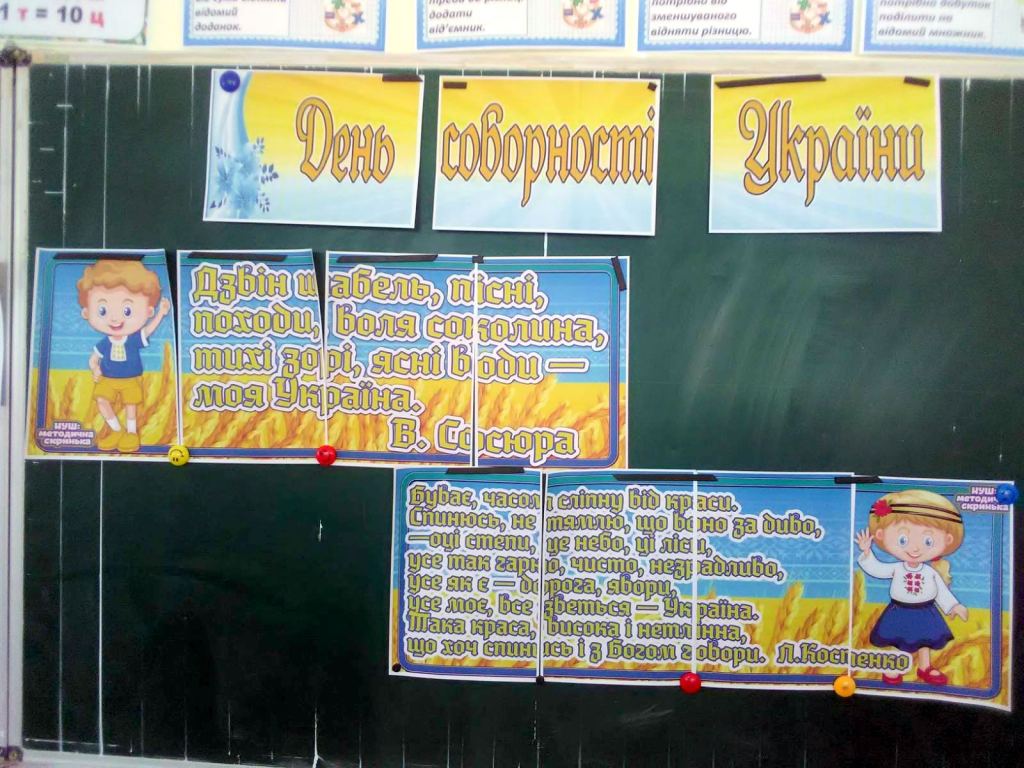 1 т = 10 ц
відомий
доданок.
додати
від'ємник.
зменшуваного
відняти різницю.
потрібно добуток
поділити на
відомий множник.
День соборності України
Дзвін шабель, пісні,
походи, воля соколина,
тихі зорі, ясні води —
моя Україна.
В. Сосюра
НУШ:
методична
скринька
Буває, часом сліпну від краси.
Спинюсь, не тямлю, що воно за диво,
—оці степи, це небо, ці ліси,
усе так гарно, чисто, незрадливо,
усе як є — дорога, явори,
усе моє, все зветься — Україна.
Така краса, висока і нетлінна,
що хоч спинись і з Богом говори. Л.Костенко
НУШ:
методична
скринька